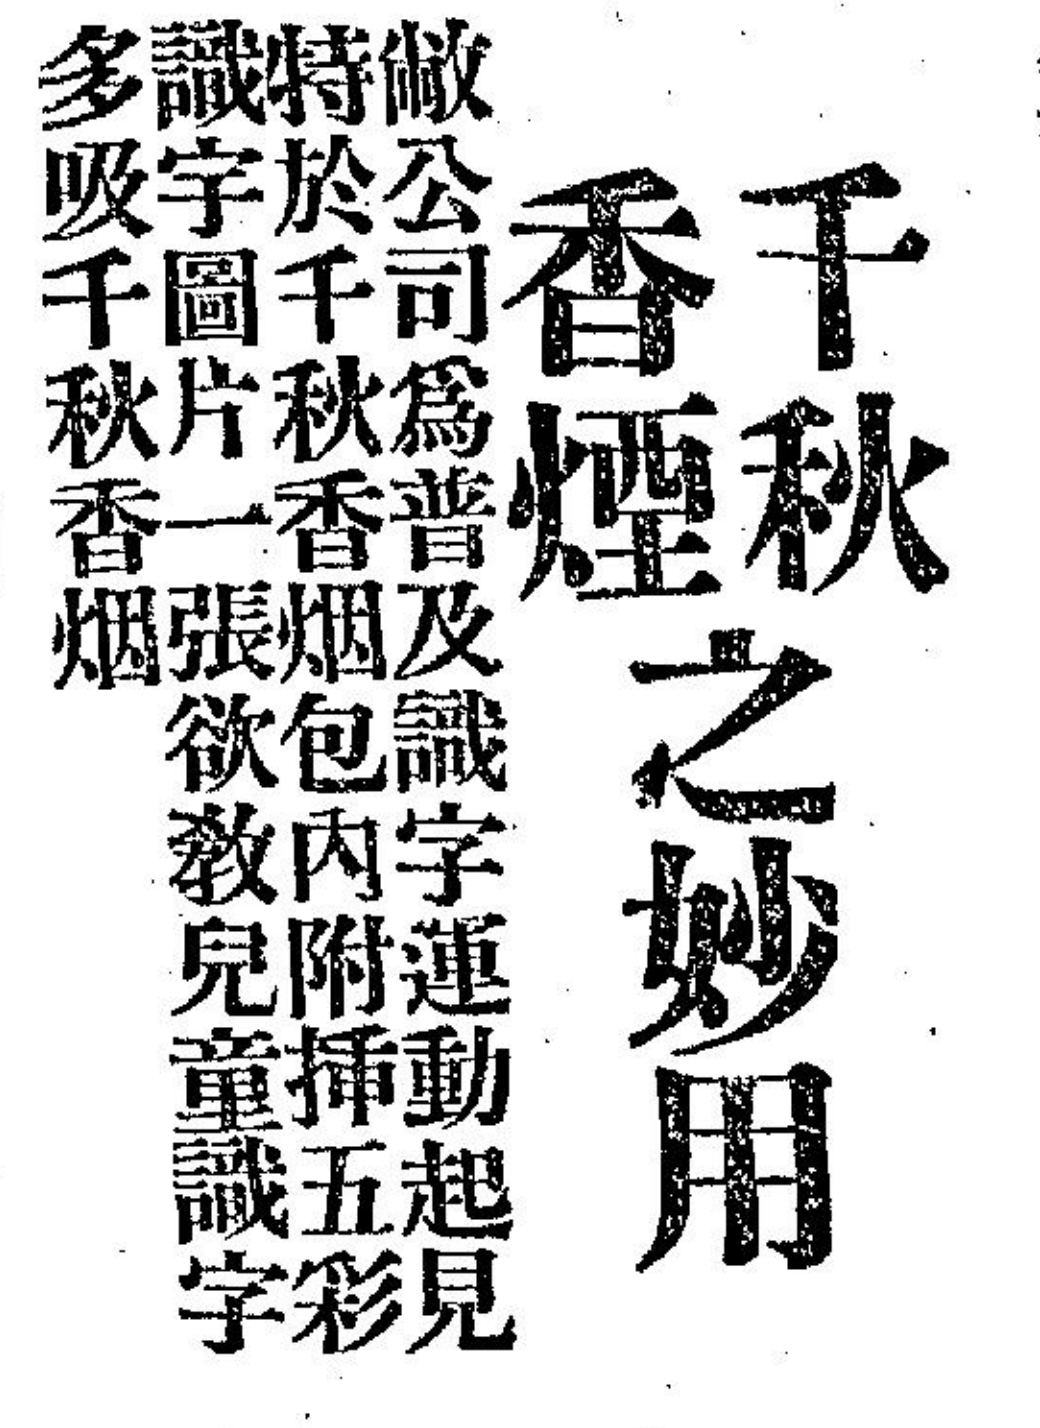 千秋
香煙
之妙用
敝公司爲普及識字運動起見
特於千秋香烟包內附揷五彩
識字圖片一張欲敎兒童識字
多吸千秋香烟